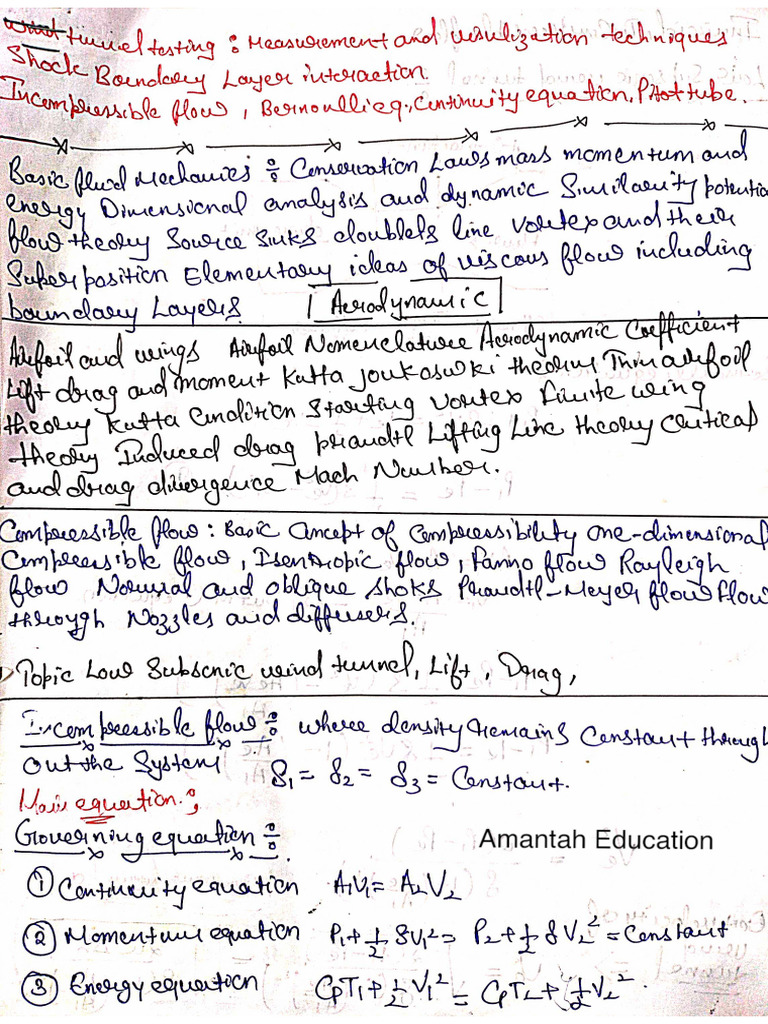 wind tunnel testing : Measurement and visulization techniques
Shock Boundary Layer interaction.
Incompressible flow, Bernoulli eq., Continuity equation, Pitot tube.
Basic fluid Mechanics : Conservation Laws mass momentum and
energy Dimensional analysis and dynamic Similarity potential
flow theory Source Sinks doublets line Vortex and their
Super position Elementary ideas of viscous flow including
boundary Layers | Aerodynamic |
Airfoil and wings Airfoil Nomenclature Aerodynamic Coefficient
Lift drag and moment Kutta Joukoswki theorems Thin airfoil
theory Kutta Condition Starting Vortex finite wing
theory Induced drag prandtl Lifting Line theory critical
and drag divergence Mach Number.
Compressible flow : Basic Concept of Compressibility one-dimensional
Compressible flow, Isentropic flow, Fanno flow Rayleigh
flow Normal and oblique shoks Prandtl-Meyer flow flow
through Nozzles and diffusers.
Topic Low Subsonic wind tunnel, Lift, Drag,
Incompressible flow : where density remains Constant through
out the System ρ₁ = ρ₂ = ρ₃ = Constant.
Main equation :
Governing equation :
Amantah Education
① Continuity equation A₁V₁ = A₂V₂
② Momentum equation P₁ + 1/2 ρV₁² = P₂ + 1/2 ρV₂² = Constant
③ Energy equation CpT₁ + 1/2 V₁² = CpT₂ + 1/2 V₂².